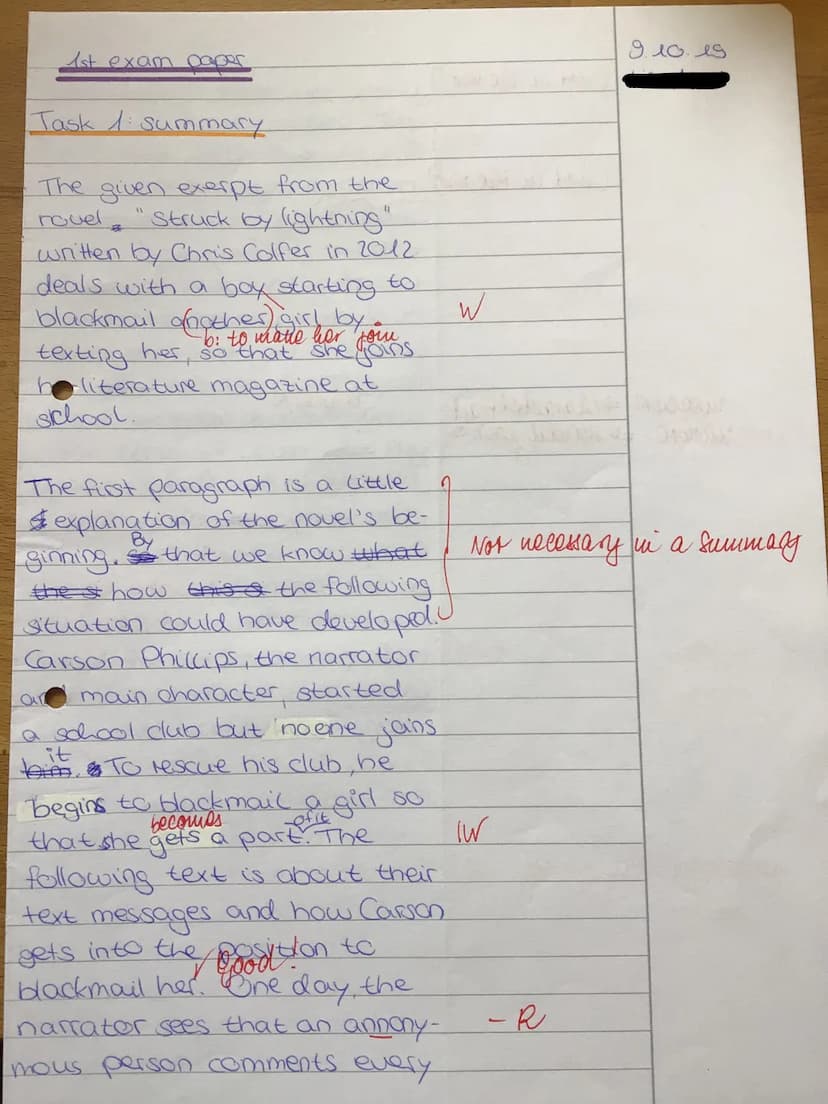 1st exam paper
9.10.19
Task 1: summary
The given exerpt from the
novel „ "Struck by lightning"
written by Chris Colfer in 2012
deals with a boy starting to
blackmail a(nother) girl by
W
b: to make her join
texting her, so that she joins
literature magazine at
school.
The first paragraph is a little
explanation of the novel's be-
ginning. By that we know what
Not necessary in a summary
the s how this s the following
situation could have developed.
Carson Phillips, the narrator
and main character, started
a school club but noone joins
it
him. To rescue his club, he
begins to blackmail a girl so
becomes of it
that she gets a part. The
IW
following text is about their
text messages and how Carson
gets into the position to
Good!
blackmail her. One day, the
narrator sees that an annony-
- R
mous person comments every